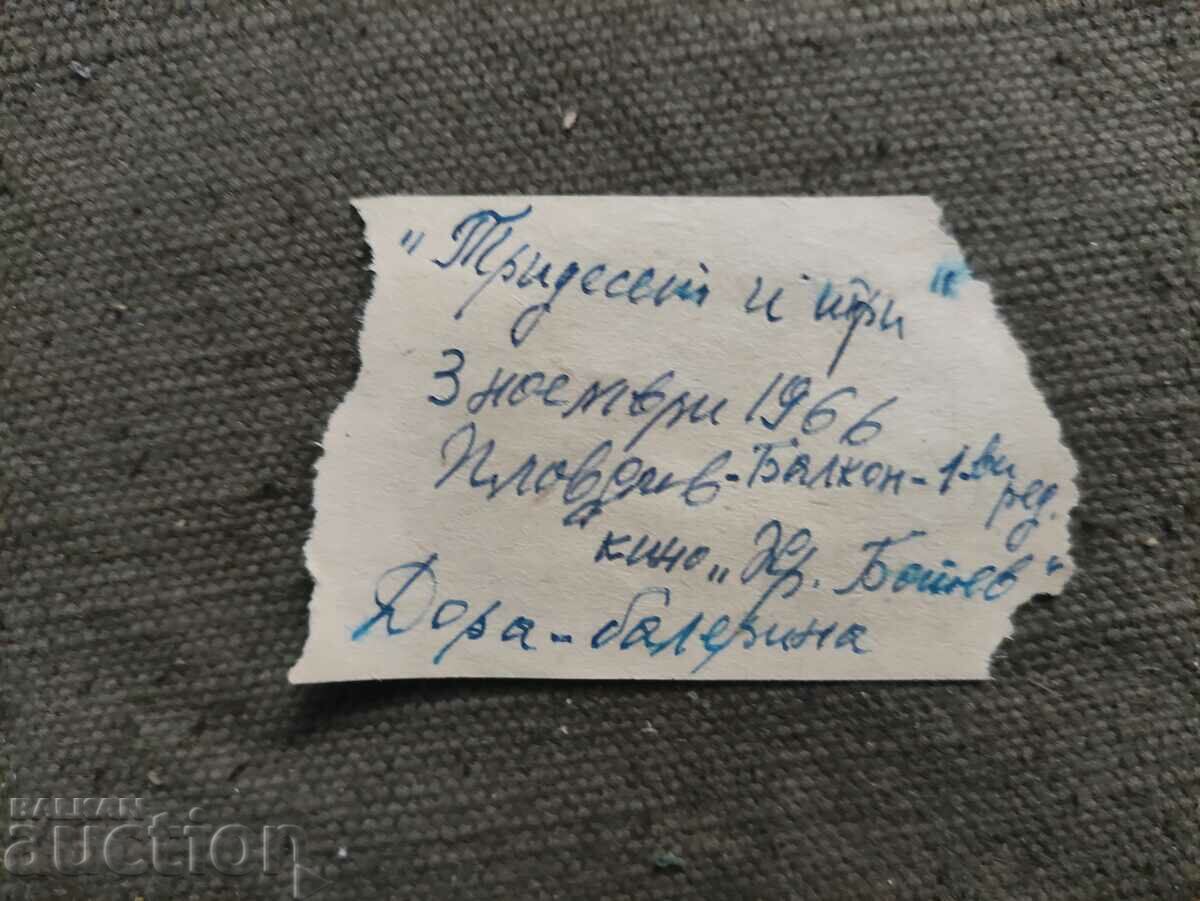 "Тридесет и три"
3 ноември 1966
Пловдив - Балкон - 1-ви ред.
кино "Хр. Ботев"
Дора - балерина
BALKAN
auction